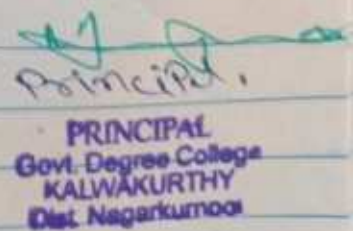 Principal.
PRINCIPAL
Govt. Degree College
KALWAKURTHY
Dist. Nagarkurnool